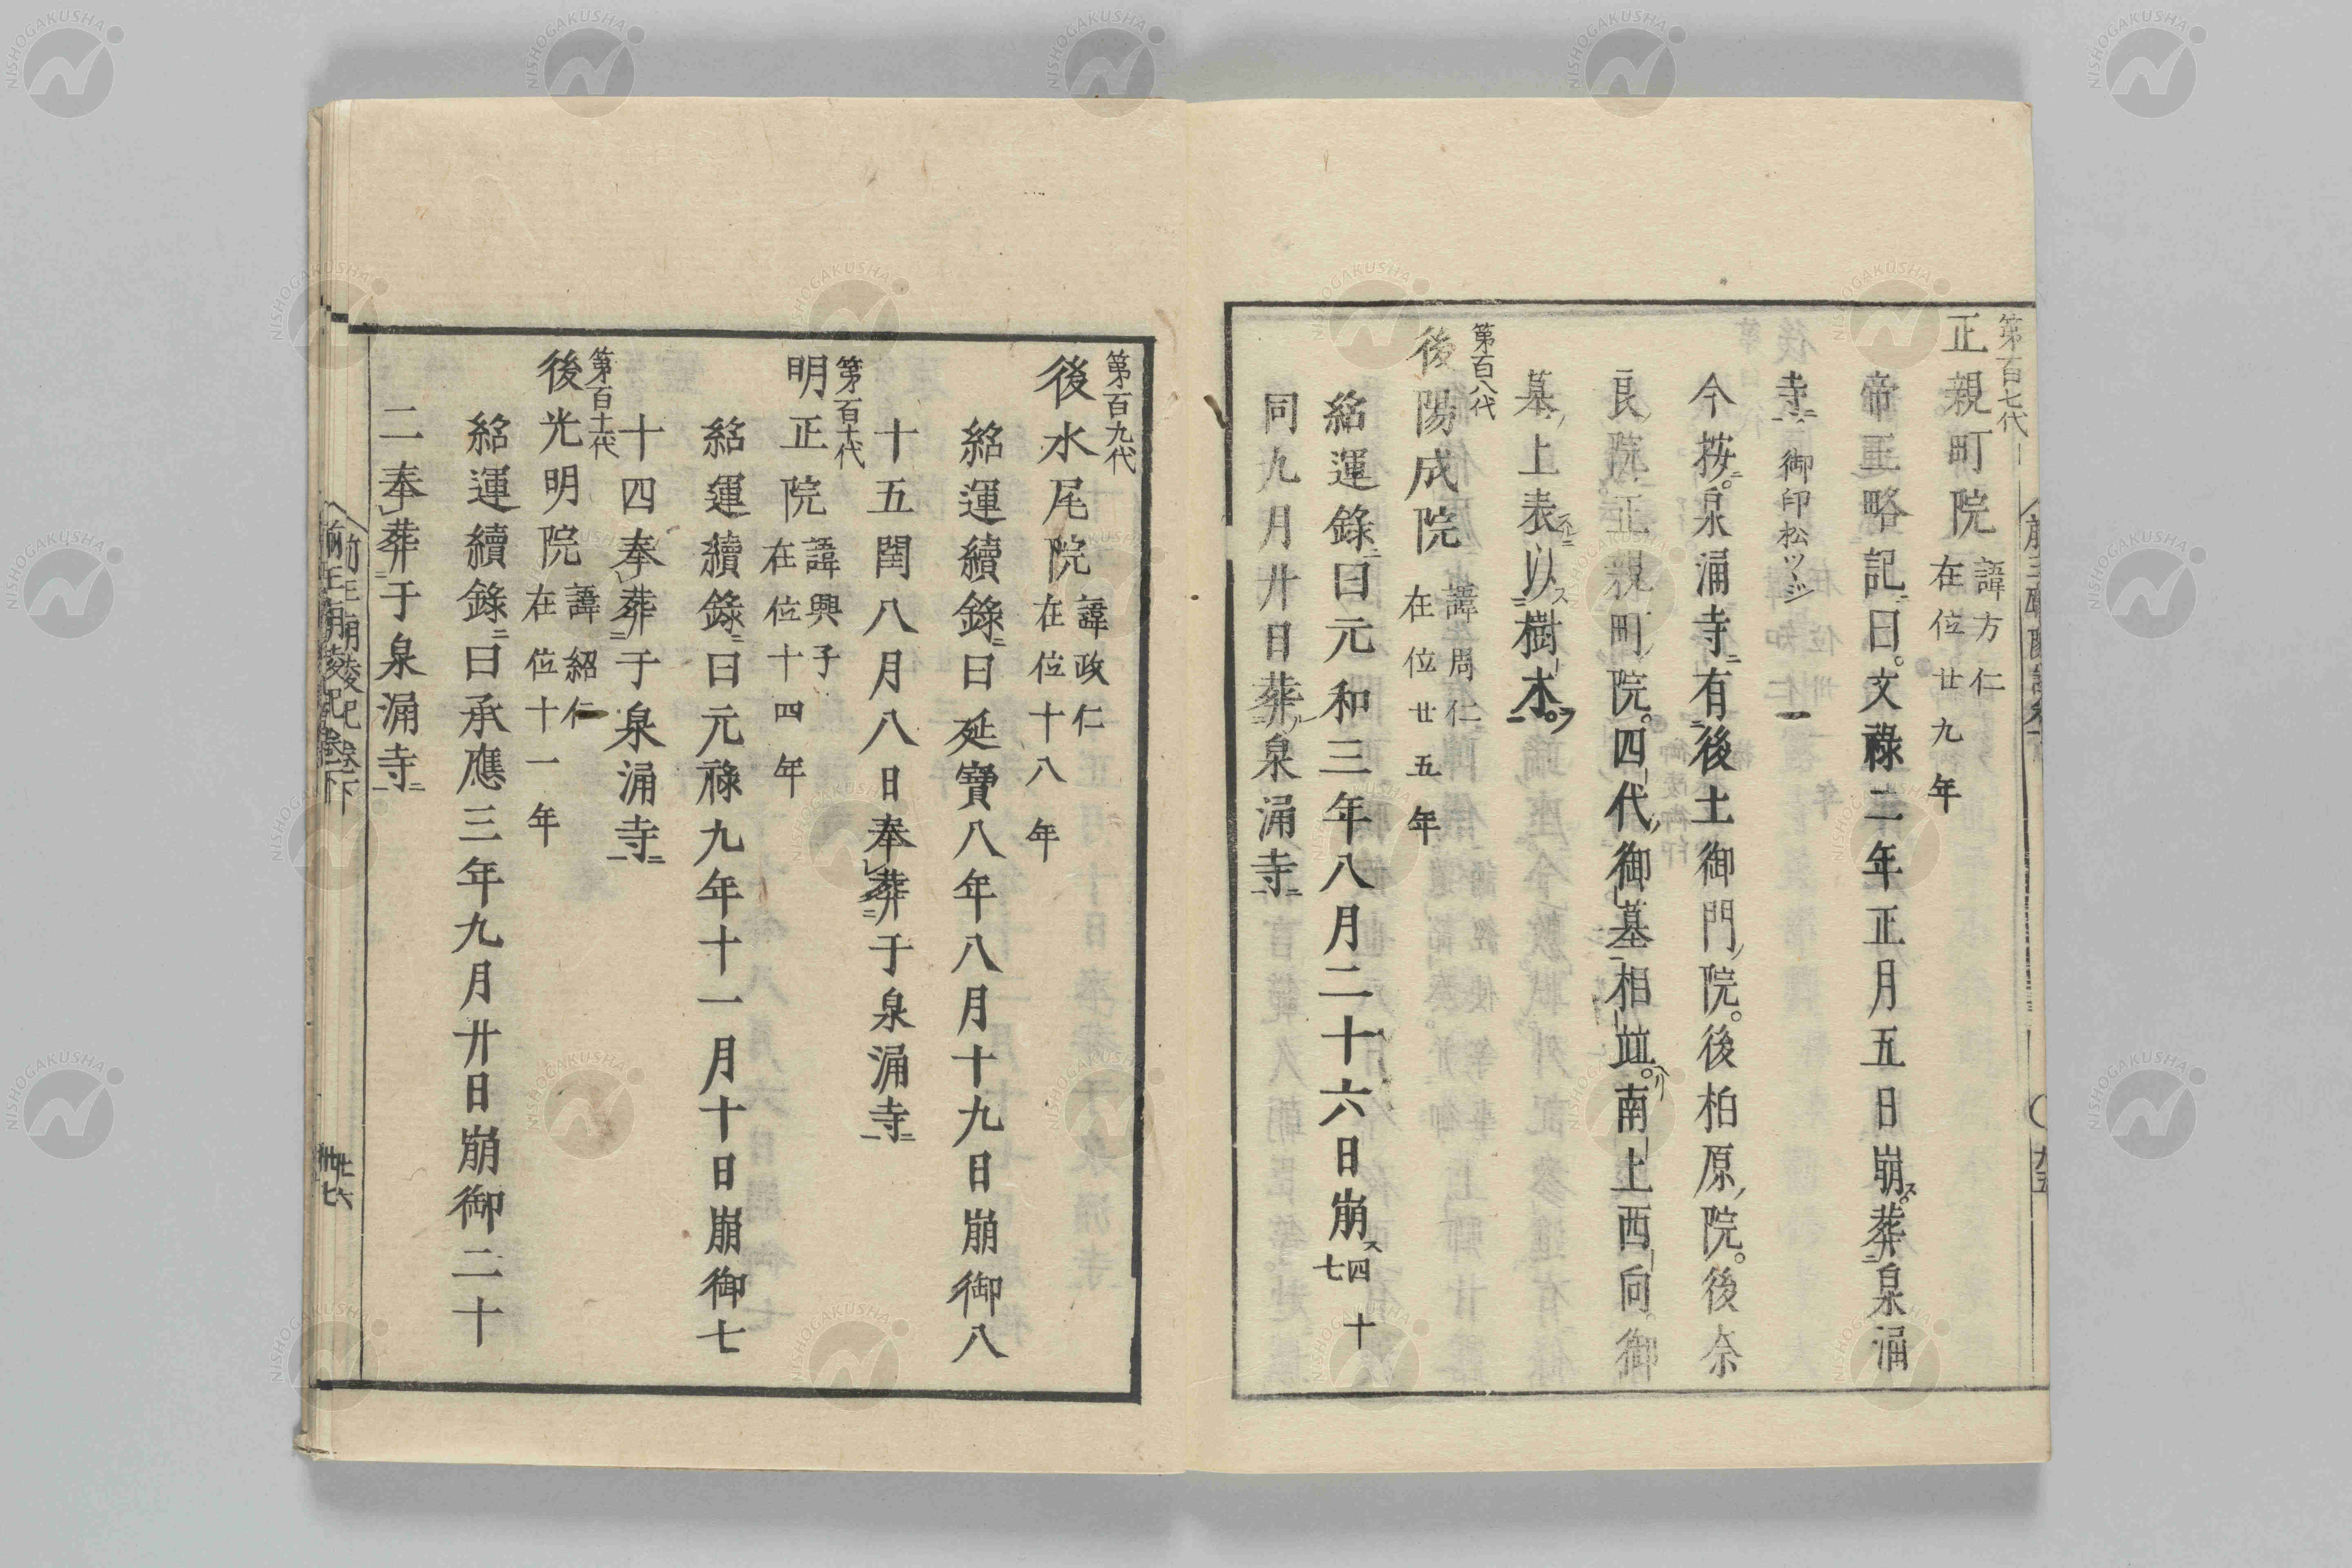 第百七代
正親町院 諱方仁 在位廿九年
帝王略記ニ曰。文祿二年正月五日崩ス。葬ニ泉涌
寺ニ一御印松ツジ
今按ニ。泉涌寺ニ有ニ後土御門ノ院。後柏原ノ院。後奈
良ノ院正親町ノ院。四代ノ御墓相竝。南上西向。御
墓ノ上表以ス樹木ヲ。
第百八代
後陽成院 諱周仁 在位廿五年
紹運錄ニ曰元和三年八月二十六日崩ス 四十七
同九月廿日葬ル泉涌寺ニ
第百九代
後水尾院 諱政仁 在位十八年
紹運續錄ニ曰延寶八年八月十九日崩御八
十五閏八月八日奉レ葬ニ于泉涌寺ニ
第百十代
明正院 諱興子 在位十四年
紹運續錄ニ曰元祿九年十一月十日崩御七
十四奉レ葬ニ于泉涌寺ニ
第百十一代
後光明院 諱紹仁 在位十一年
紹運續錄ニ曰承應三年九月廿日崩御二十
二奉レ葬ニ于泉涌寺ニ
前王廟陵記卷下
廿六
NISHOGAKUSHA